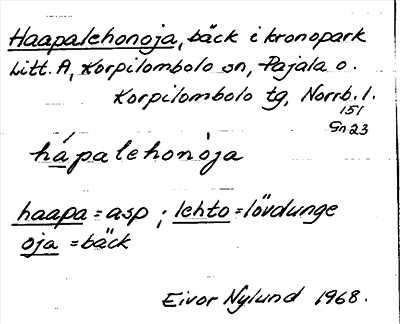 Haapalehonoja, bäck i kronopark
Litt. A, Korpilombolo sn, Pajala o.
Korpilombolo tg, Norrb. l.
151
Gn 23
hápalehonòja
haapa = asp ; lehto = lövdunge
oja = bäck
Eivor Nylund 1968.